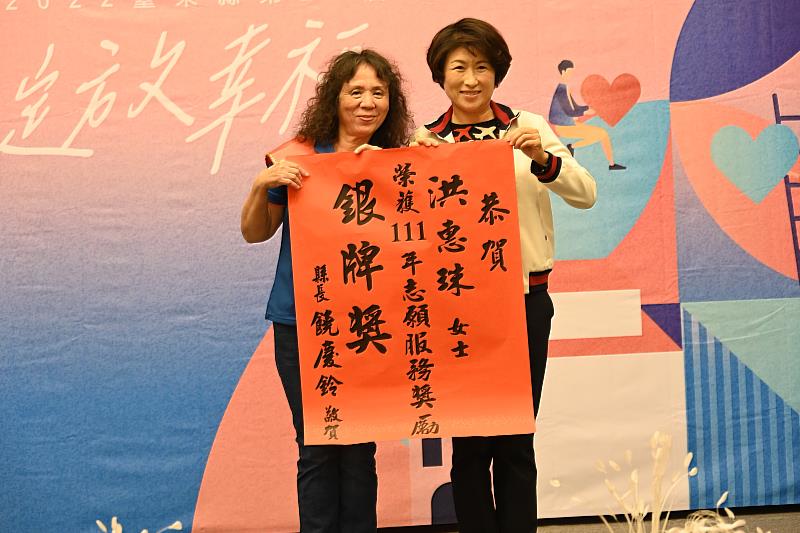 2022臺東縣
綻放幸福
恭賀
洪惠珠 女士
榮獲111年志願服務獎勵
銀牌獎
縣長 饒慶鈴 敬賀